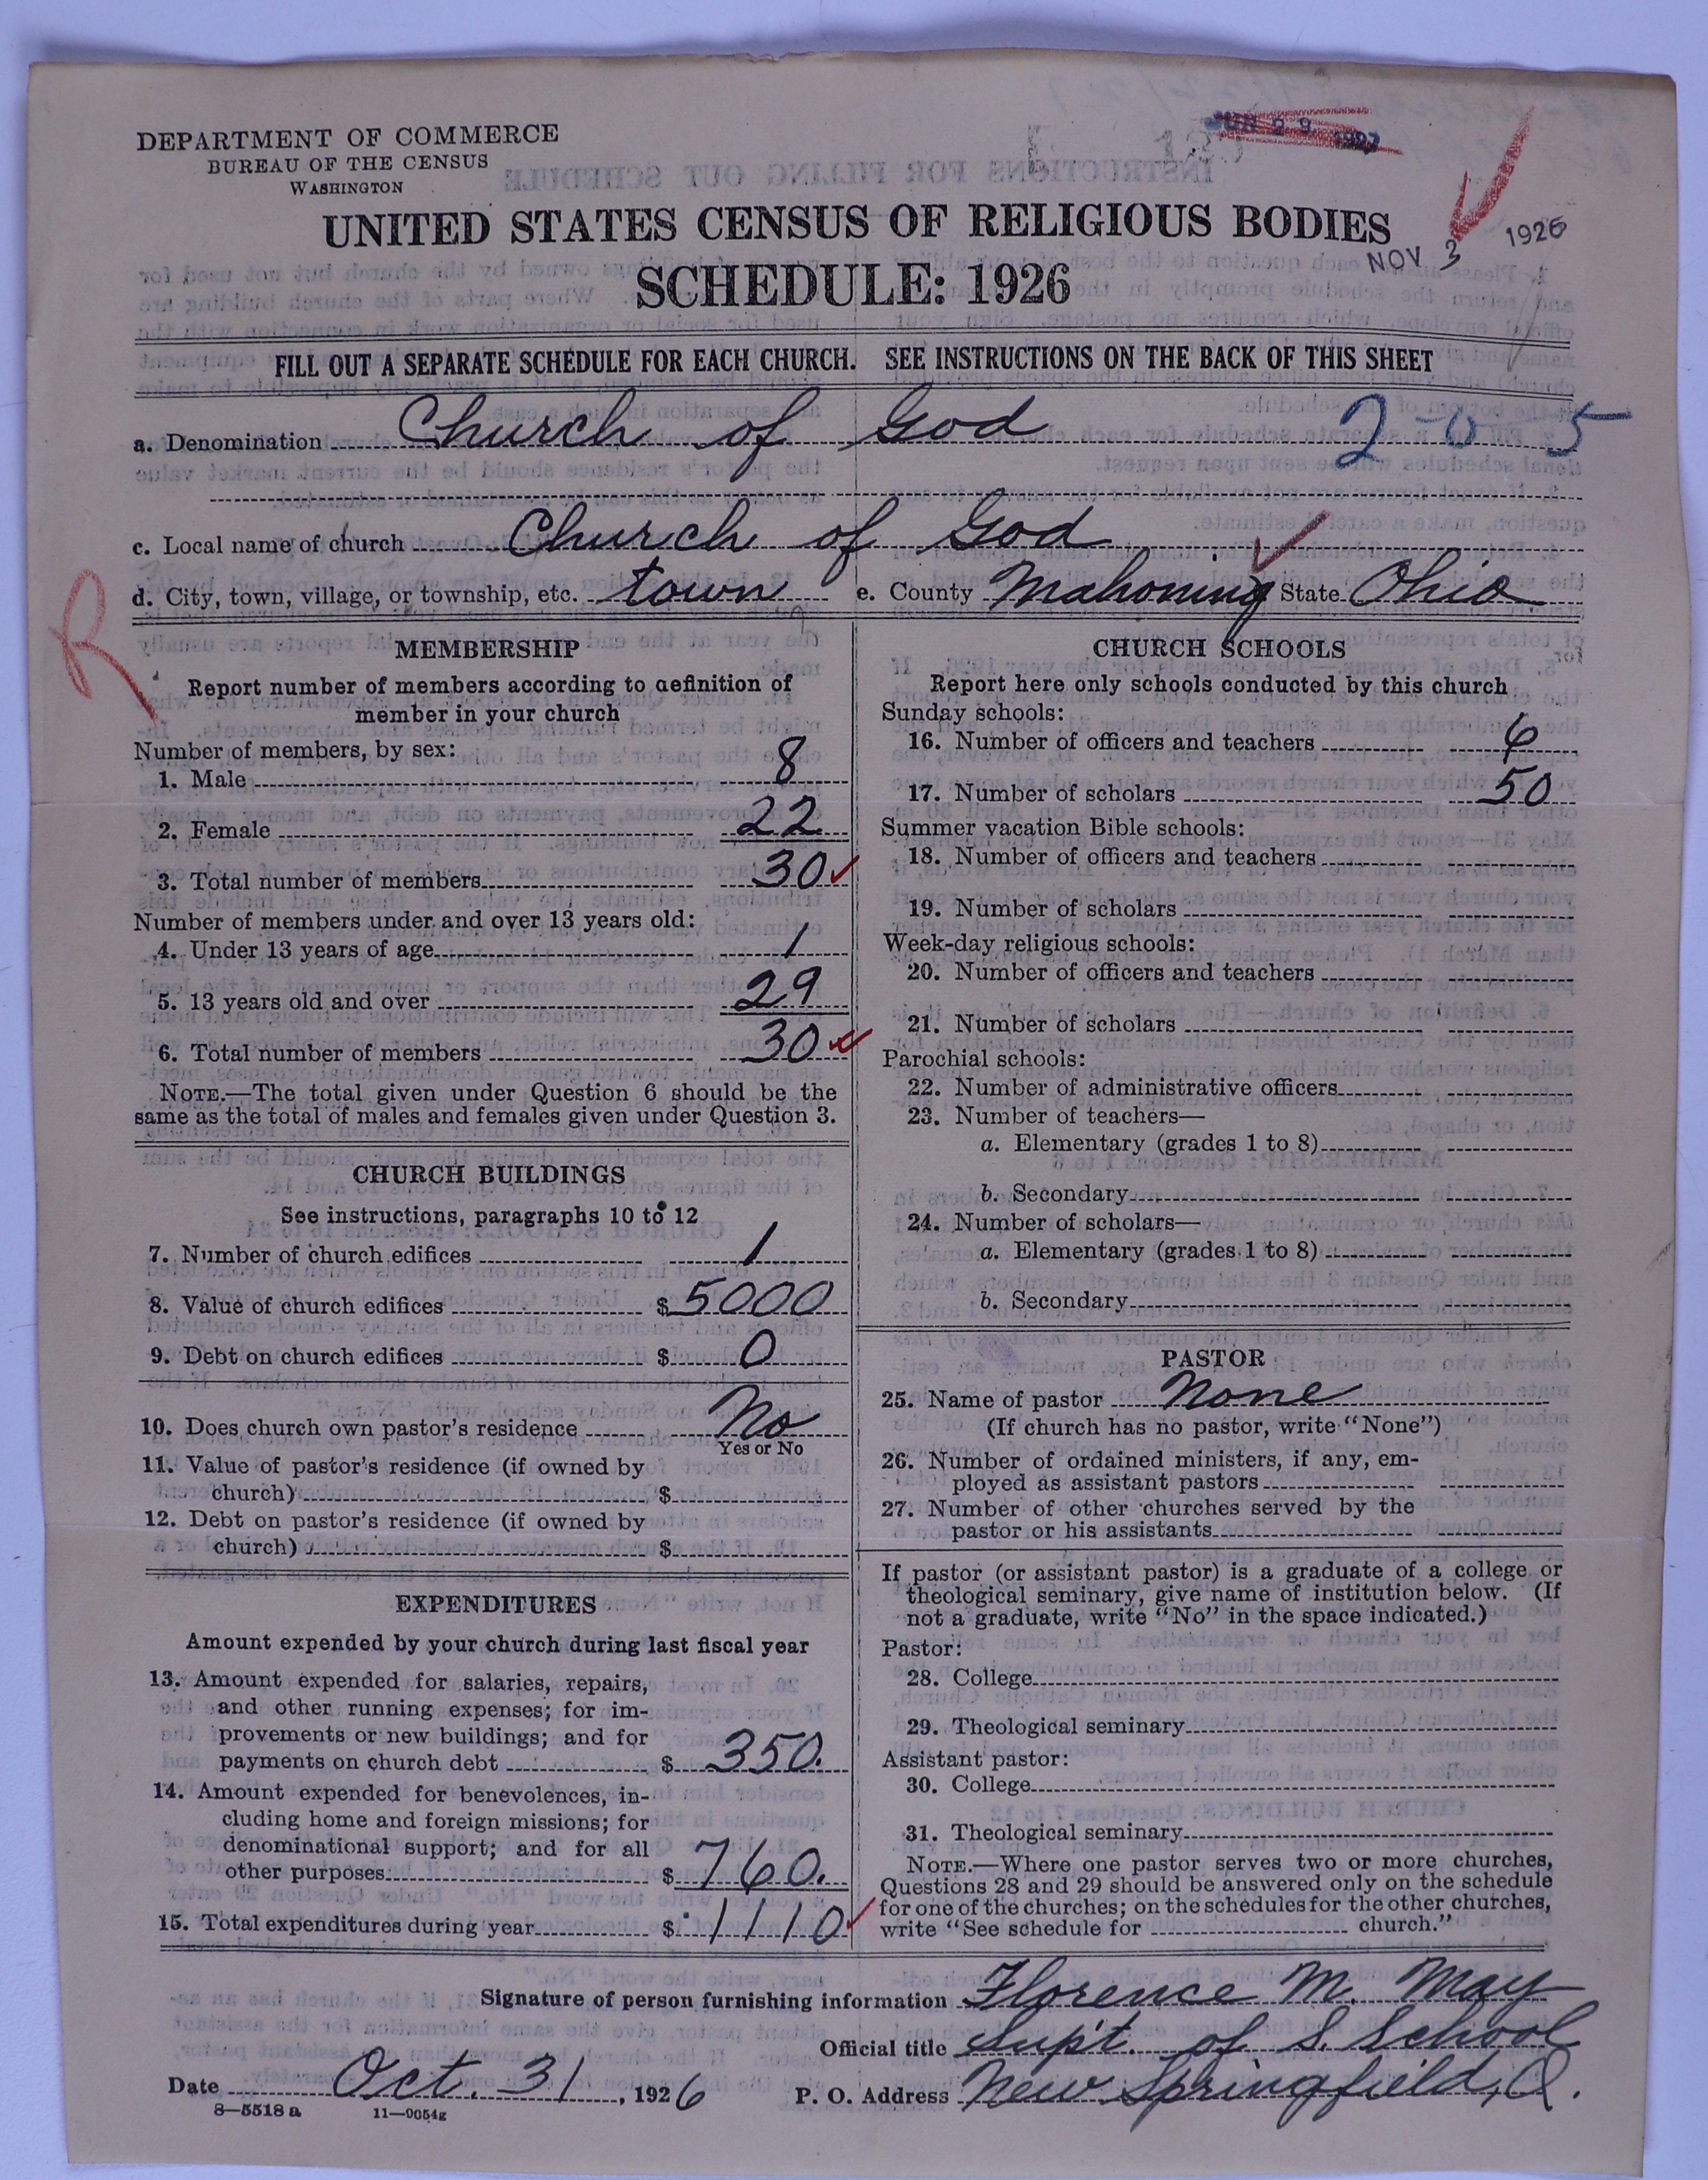 DEPARTMENT OF COMMERCE
BUREAU OF THE CENSUS
WASHINGTON
JUN 29 1927
UNITED STATES CENSUS OF RELIGIOUS BODIES
NOV 3 1926
SCHEDULE: 1926
FILL OUT A SEPARATE SCHEDULE FOR EACH CHURCH. SEE INSTRUCTIONS ON THE BACK OF THIS SHEET
a. Denomination Church of God 2-0 5
c. Local name of church Church of God
d. City, town, village, or township, etc. town e. County Mahoning State Ohio
R
MEMBERSHIP
Report number of members according to definition of
member in your church
Number of members, by sex:
1. Male 8
2. Female 22
3. Total number of members 30
Number of members under and over 13 years old:
4. Under 13 years of age 1
5. 13 years old and over 29
6. Total number of members 30
NOTE.—The total given under Question 6 should be the
same as the total of males and females given under Question 3.
CHURCH BUILDINGS
See instructions, paragraphs 10 to 12
7. Number of church edifices 1
8. Value of church edifices $ 5000
9. Debt on church edifices $ 0
10. Does church own pastor's residence No
Yes or No
11. Value of pastor's residence (if owned by
church) $
12. Debt on pastor's residence (if owned by
church) $
EXPENDITURES
Amount expended by your church during last fiscal year
13. Amount expended for salaries, repairs,
and other running expenses; for im-
provements or new buildings; and for
payments on church debt $ 350.
14. Amount expended for benevolences, in-
cluding home and foreign missions; for
denominational support; and for all
other purposes $ 760.
15. Total expenditures during year $ 1110
CHURCH SCHOOLS
Report here only schools conducted by this church
Sunday schools:
16. Number of officers and teachers 6
17. Number of scholars 50
Summer vacation Bible schools:
18. Number of officers and teachers
19. Number of scholars
Week-day religious schools:
20. Number of officers and teachers
21. Number of scholars
Parochial schools:
22. Number of administrative officers
23. Number of teachers—
a. Elementary (grades 1 to 8)
b. Secondary
24. Number of scholars—
a. Elementary (grades 1 to 8)
b. Secondary
PASTOR
25. Name of pastor None
(If church has no pastor, write "None")
26. Number of ordained ministers, if any, em-
ployed as assistant pastors
27. Number of other churches served by the
pastor or his assistants
If pastor (or assistant pastor) is a graduate of a college or
theological seminary, give name of institution below. (If
not a graduate, write "No" in the space indicated.)
Pastor:
28. College
29. Theological seminary
Assistant pastor:
30. College
31. Theological seminary
NOTE.—Where one pastor serves two or more churches,
Questions 28 and 29 should be answered only on the schedule
for one of the churches; on the schedules for the other churches,
write "See schedule for church."
Signature of person furnishing information Florence M. May
Official title Sup't. of S. School
Date Oct. 31, 1926 P. O. Address New Springfield, O.
8—5518 a 11—9054g